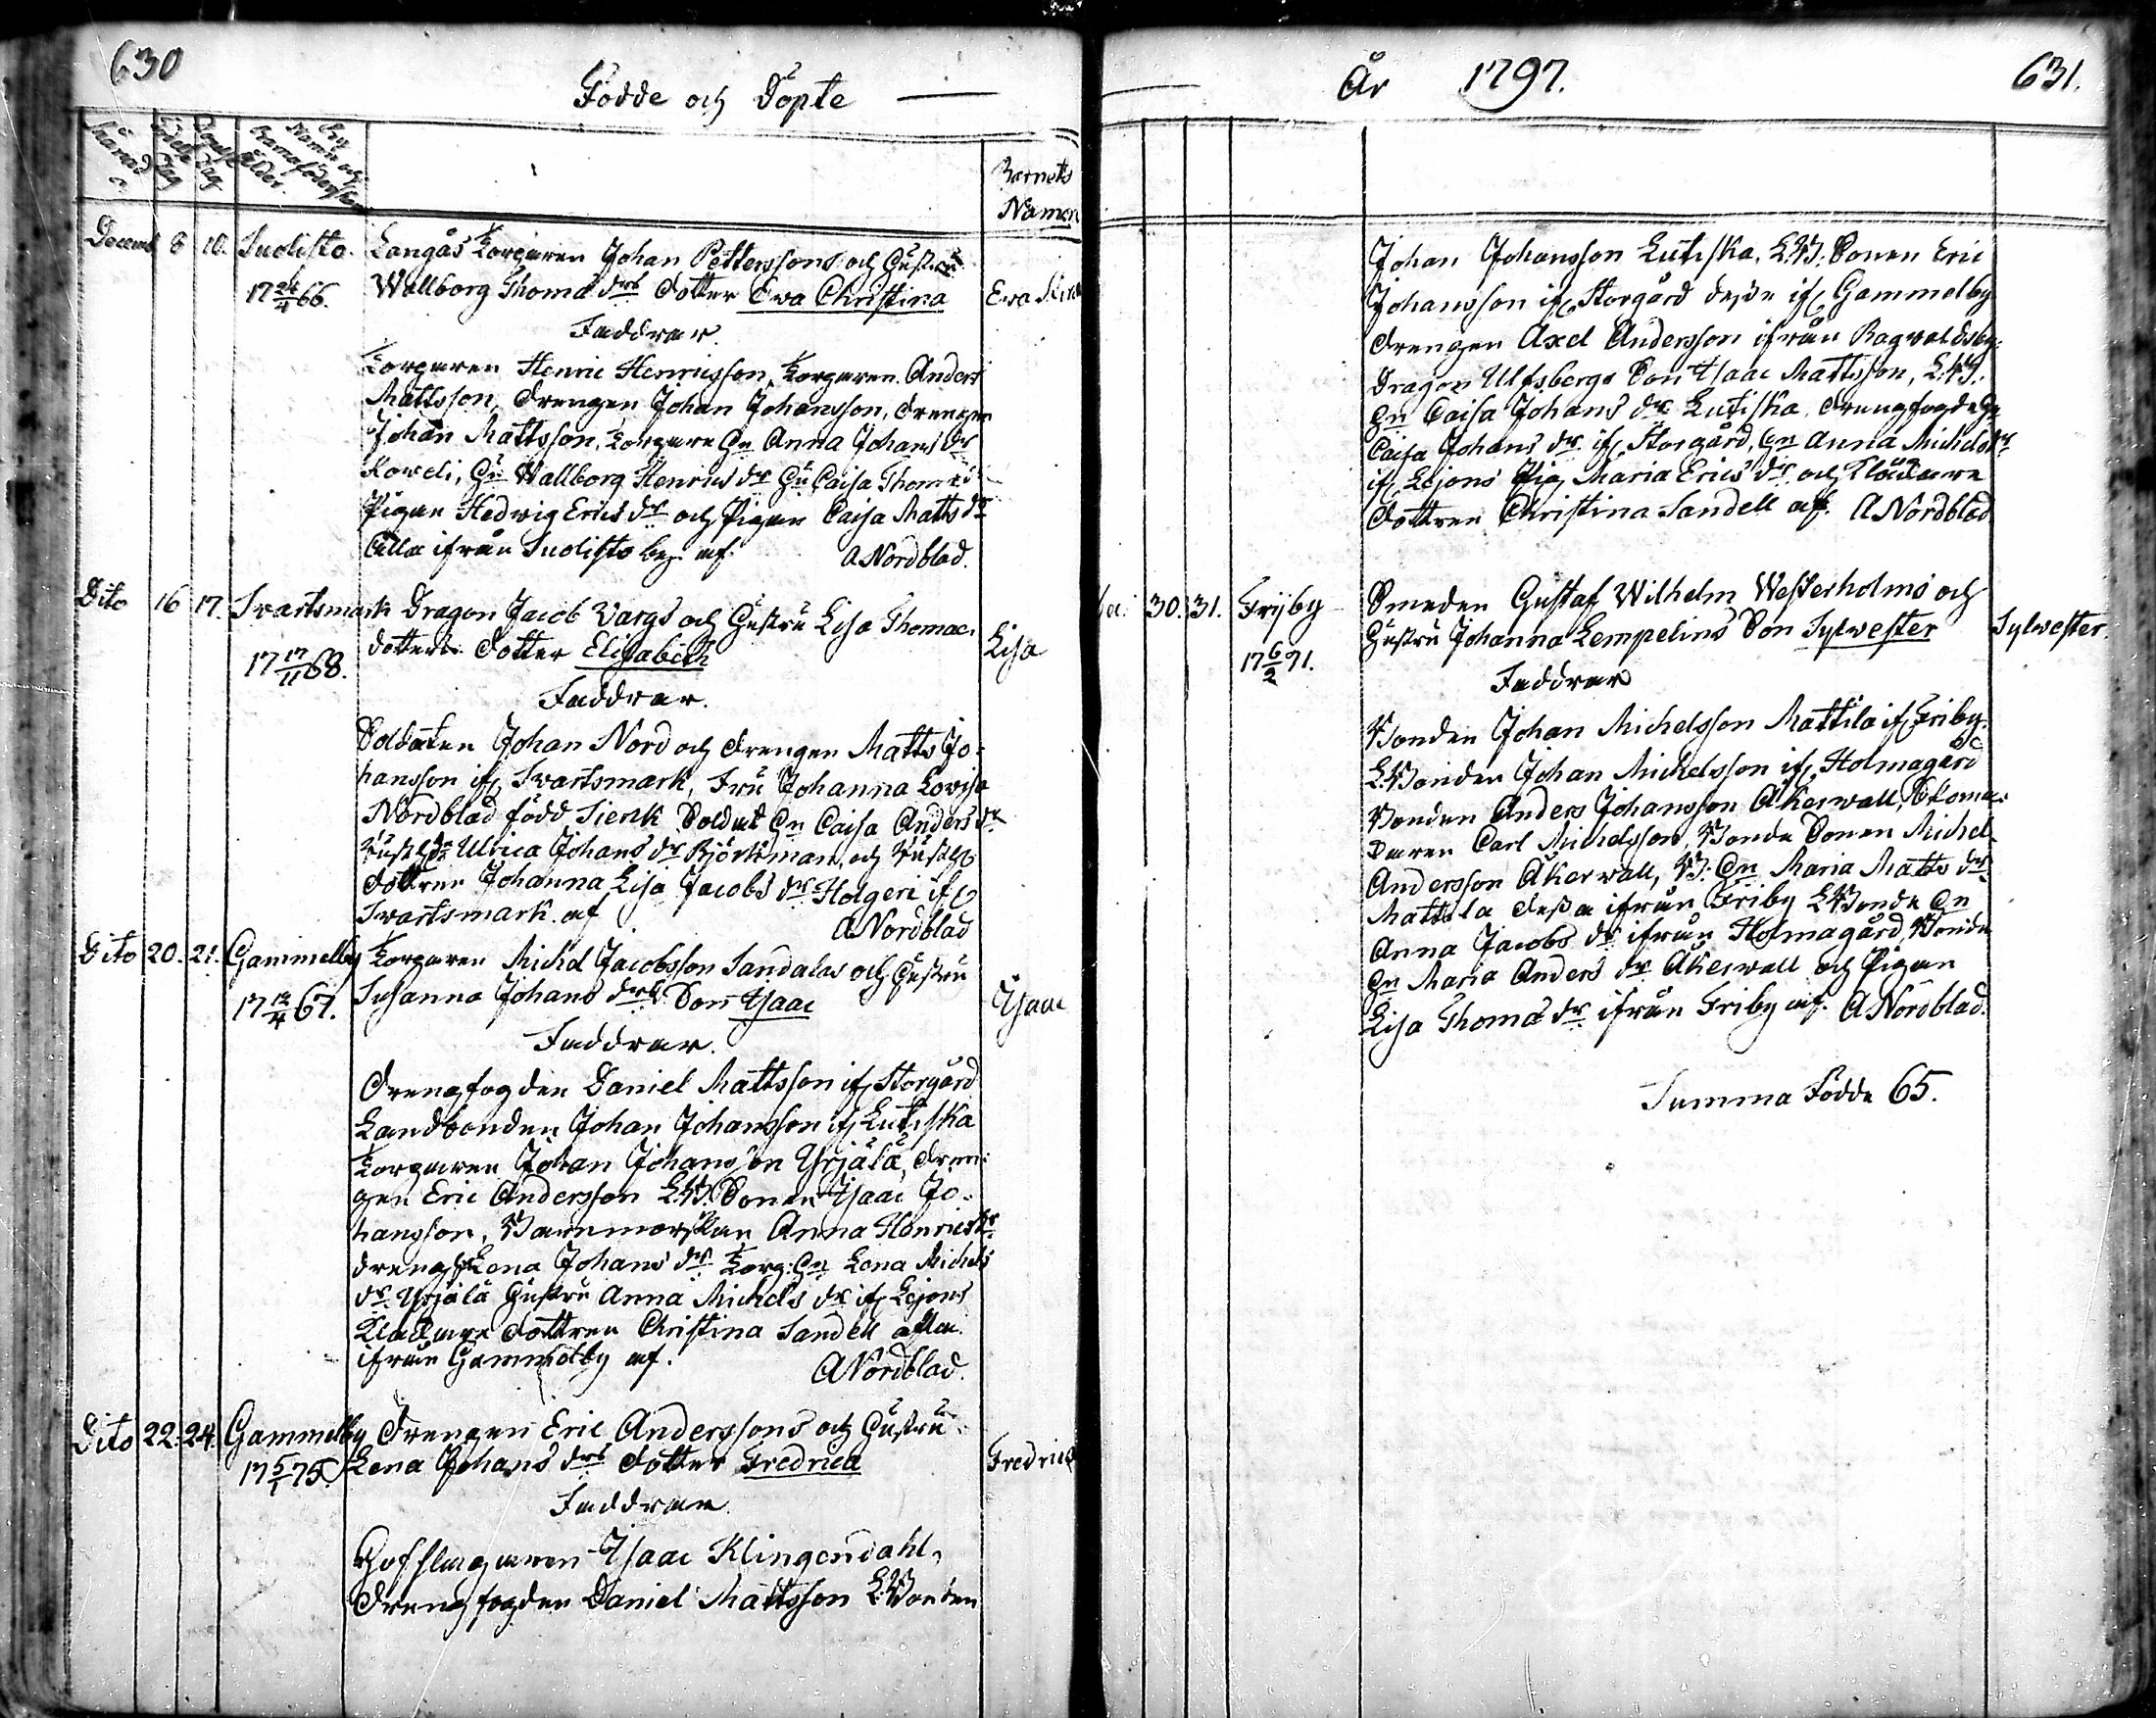 630
Födde och Döpte
Månad
Födelse Dag
Döpelse Dag
Barnets
Namn
Decemb 8 10. Suolisto. Langås Torparen Johan Petterssons och hustru
17 24/4 66. Wallborg Thomæ drs dotter Ewa Christina Ewa Stina
Faddrar.
Torparen Henric Henricsson, Torparen Anders
Mattsson, drengen Johan Johansson, drengen
Johan Mattsson, Torpare Hn Anna Johans dr
Koweli, Hn Wallborg Henrics dr Hn Caisa Thomæ dr
Pigan Hedwig Erics dr och Pigan Caisa Matts dr
alla ifrån Suolisto by af. A Nordblad.
Dito 16 17. Swartsmark Dragon Jacob Vargs och hustru Lisa Thomæ
17 17/11 68. dotters dotter Elisabeth Lisa
Faddrar.
Soldaten Johan Nord och drengen Matts Jo-
hansson if. Swartsmark, Fru Johanna Lovisa
Nordblad född Sierck Soldat Hn Caisa Anders dr
Ulrica Johans dr Björkman och
dottren Johanna Lisa Jacobs dr Holgeri if.
Swartsmark. af A Nordblad
Dito 20. 21. Gammelby Torparen Michel Jacobsson Sandalas och hustru
17 12/4 67. Susanna Johans drs Son Isaac Isaac
Faddrar.
Drengfogden Daniel Mattsson if. Storgård
Landbonden Johan Johansson if. Lutiska
Torparen Johan Johansson Yrjälä, dren-
gen Eric Andersson L.B. Sonen Isaac Jo-
hansson, Barnmorskan Anna Henrics dr
drengf. Lena Johans dr Torp. Hn Lena Michels
dr Yrjälä hustru Anna Michels dr if. Lejons
Klockare dottren Christina Sandell alla
ifrån Gammelby af. A Nordblad.
Dito 22. 24. Gammelby Drengen Eric Anderssons och hustru
17 5/1 75. Lena Johans drs dotter Fredrica Fredrica
Faddrar
Hofslagaren Isaac Klingendahl,
Drengfogden Daniel Mattsson L. Bonden
År 1797. 631.
Johan Johansson Lutiska, L.B. Sonen Eric
Johansson if. Storgård desse if. Gammelby
drengen Axel Andersson ifrån Ragwaldsby.
Dragon Ulfsbergs Son Isaac Mattsson, L.B.
Hn Caisa Johans dr Lutiska drengfogde Hn
Caisa Johans dr if. Storgård, Hn Anna Michels dr
if. Lejons Pig. Maria Erics dr och Klockare
dottren Christina Sandell af. A Nordblad
Dec. 30. 31. Frijby Smeden Gustaf Wilhelm Westerholms och
17 6/2 71. hustru Johanna Lempelius Son Sylwester Sylwester.
Faddrar
Bonden Johan Michelsson Mattila if. Friby.
L. Bonden Johan Michelsson if. Holmagård
Bonden Anders Johansson Åkerwall, Skoma-
karen Carl Michelsson, Bonde Sonen Michel
Andersson Åkerwall, B. Hn Maria Matts dr
Mattila dessa ifrån Friby L. Bonde Hn
Anna Jacobs dr ifrån Holmagård, Bonde
Hn Maria Anders dr Åkerwall och Pigan
Lisa Thomæ dr ifrån Friby af. A Nordblad.
Summa Födde 65.